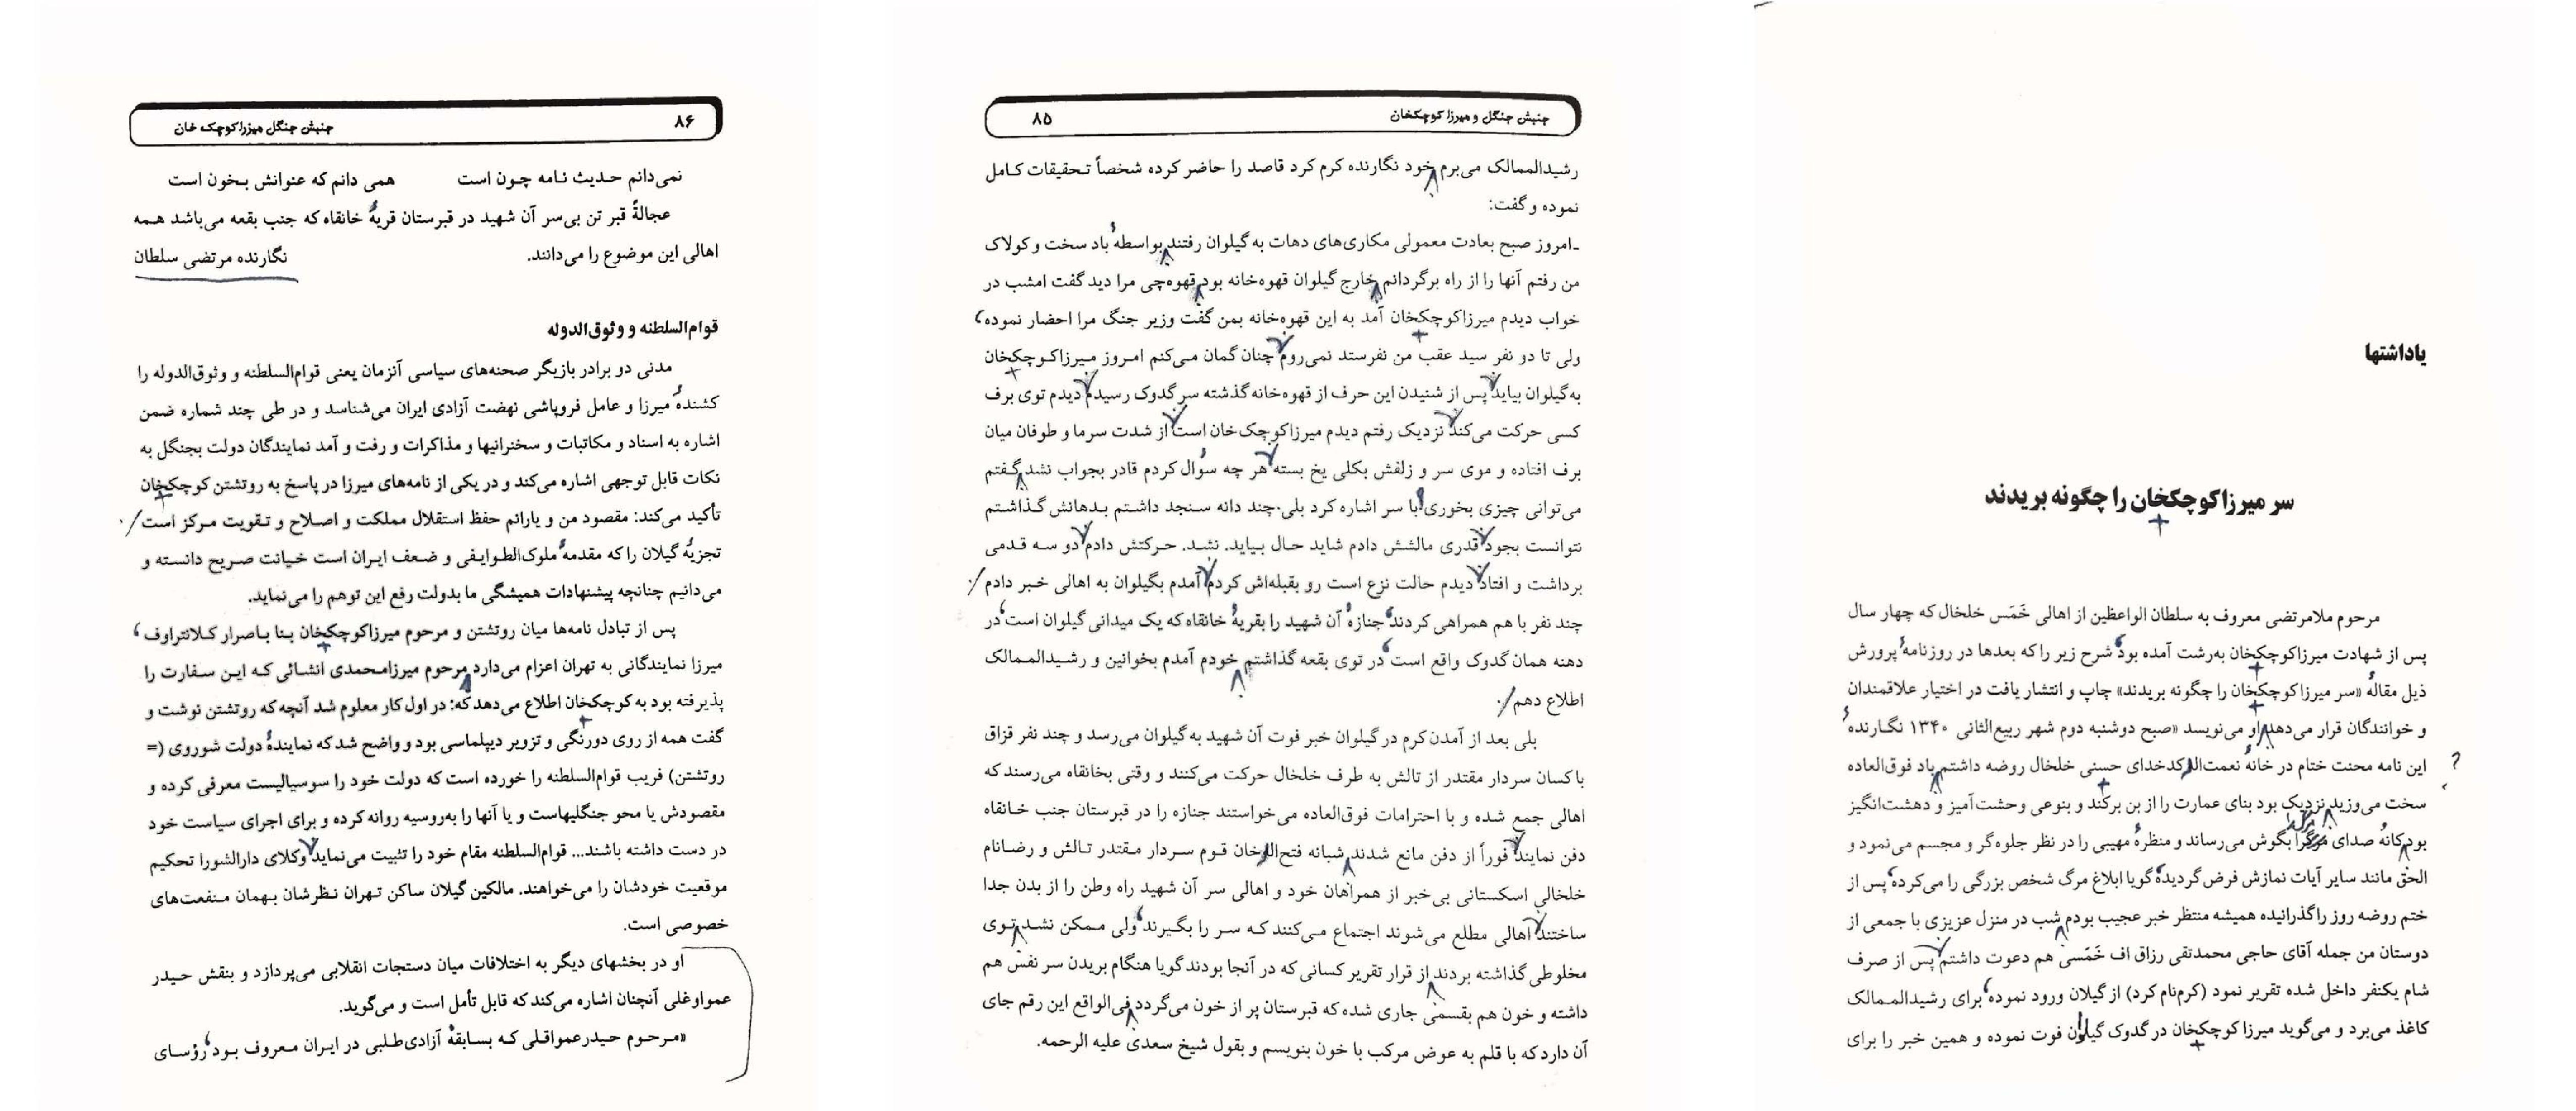 یاداشتها
سر میرزاکوچکخان را چگونه بریدند
مرحوم ملامرتضی معروف به سلطان الواعظین از اهالی خَمَس خلخال که چهار سال
پس از شهادت میرزاکوچکخان به‌رشت آمده بود شرح زیر را که بعدها در روزنامه پرورش
ذیل مقاله «سر میرزاکوچکخان را چگونه بریدند» چاپ و انتشار یافت در اختیار علاقمندان
و خوانندگان قرار می‌دهد او می‌نویسد «صبح دوشنبه دوم شهر ربیع‌الثانی ۱۳۴۰ نگارنده
این نامه محنت ختام در خانه نعمت‌الله کدخدای حسنی خلخال روضه داشتم باد فوق‌العاده
سخت می‌وزید نزدیک بود بنای عمارت را از بن برکند و بنوعی وحشت‌آمیز و دهشت‌انگیز
بود کانه صدای مرگ را بگوش می‌رساند و منظره مهیبی را در نظر جلوه‌گر و مجسم می‌نمود و
الحق مانند سایر آیات نمازش فرض گردیده گویا ابلاغ مرگ شخص بزرگی را می‌کرده پس از
ختم روضه روز را گذرانیده همیشه منتظر خبر عجیب بودم شب در منزل عزیزی با جمعی از
دوستان من جمله آقای حاجی محمدتقی رزاق اف خَمَسی هم دعوت داشتم پس از صرف
شام یکنفر داخل شده تقریر نمود (کرم‌نام کرد) از گیلان ورود نموده برای رشیدالممالک
کاغذ می‌برد و می‌گوید میرزا کوچکخان در گدوک گیلوان فوت نموده و همین خبر را برای
جنبش جنگل و میرزا کوچکخان ۸۵
رشیدالممالک می‌برم خود نگارنده کرم کرد قاصد را حاضر کرده شخصاً تحقیقات کامل
نموده و گفت:
ـ امروز صبح بعادت معمولی مکاری‌های دهات به گیلوان رفتند بواسطه باد سخت و کولاک
من رفتم آنها را از راه برگردانم خارج گیلوان قهوه‌خانه بود قهوه‌چی مرا دید گفت امشب در
خواب دیدم میرزاکوچکخان آمد به این قهوه‌خانه بمن گفت وزیر جنگ مرا احضار نموده
ولی تا دو نفر سید عقب من نفرستد نمی‌روم چنان گمان می‌کنم امروز میرزاکوچکخان
به گیلوان بیاید پس از شنیدن این حرف از قهوه‌خانه گذشته سر گدوک رسیدم دیدم توی برف
کسی حرکت می‌کند نزدیک رفتم دیدم میرزاکوچک‌خان است از شدت سرما و طوفان میان
برف افتاده و موی سر و زلفش بکلی یخ بسته هر چه سؤال کردم قادر بجواب نشد گفتم
می‌توانی چیزی بخوری؟ با سر اشاره کرد بلی. چند دانه سنجد داشتم بدهانش گذاشتم
نتوانست بجود قدری مالشش دادم شاید حال بیاید. نشد. حرکتش دادم دو سه قدمی
برداشت و افتاد دیدم حالت نزع است رو بقبله‌اش کردم آمدم بگیلوان به اهالی خبر دادم.
چند نفر با هم همراهی کردند جنازه آن شهید را بقریه خانقاه که یک میدانی گیلوان است در
دهنه همان گدوک واقع است در توی بقعه گذاشتم خودم آمدم بخوانین و رشیدالممالک
اطلاع دهم.
بلی بعد از آمدن کرم در گیلوان خبر فوت آن شهید به گیلوان می‌رسد و چند نفر قزاق
با کسان سردار مقتدر از تالش به طرف خلخال حرکت می‌کنند و وقتی بخانقاه می‌رسند که
اهالی جمع شده و با احترامات فوق‌العاده می‌خواستند جنازه را در قبرستان جنب خانقاه
دفن نمایند فوراً از دفن مانع شدند شبانه فتح‌الله‌خان قوم سردار مقتدر تالش و رضانام
خلخالی اسکستانی بی‌خبر از همراهان خود و اهالی سر آن شهید راه وطن را از بدن جدا
ساختند اهالی مطلع می‌شوند اجتماع می‌کنند که سر را بگیرند ولی ممکن نشد توی
مخلوطی گذاشته بردند از قرار تقریر کسانی که در آنجا بودند گویا هنگام بریدن سر نفس هم
داشته و خون هم بقسمی جاری شده که قبرستان پر از خون می‌گردد فی‌الواقع این رقم جای
آن دارد که با قلم به عوض مرکب با خون بنویسم و بقول شیخ سعدی علیه الرحمه.
۸۶ جنبش جنگل میرزاکوچک خان
نمی‌دانم حدیث نامه چون است همی دانم که عنوانش بخون است
عجالةً قبر تن بی‌سر آن شهید در قبرستان قریه خانقاه که جنب بقعه می‌باشد همه
اهالی این موضوع را می‌دانند. نگارنده مرتضی سلطان
قوام‌السلطنه و وثوق‌الدوله
مدنی دو برادر بازیگر صحنه‌های سیاسی آنزمان یعنی قوام‌السلطنه و وثوق‌الدوله را
کشنده میرزا و عامل فروپاشی نهضت آزادی ایران می‌شناسد و در طی چند شماره ضمن
اشاره به اسناد و مکاتبات و سخنرانیها و مذاکرات و رفت و آمد نمایندگان دولت بجنگل به
نکات قابل توجهی اشاره می‌کند و در یکی از نامه‌های میرزا در پاسخ به روتشتن کوچکخان
تأکید می‌کند: مقصود من و یارانم حفظ استقلال مملکت و اصلاح و تقویت مرکز است.
تجزیه گیلان را که مقدمه ملوک‌الطوایفی و ضعف ایران است خیانت صریح دانسته و
می‌دانیم چنانچه پیشنهادات همیشگی ما بدولت رفع این توهم را می‌نماید.
پس از تبادل نامه‌ها میان روتشتن و مرحوم میرزاکوچکخان بنا باصرار کلانتراوف
میرزا نمایندگانی به تهران اعزام می‌دارد مرحوم میرزامحمدی انشائی که این سفارت را
پذیرفته بود به کوچکخان اطلاع می‌دهد که: در اول کار معلوم شد آنچه که روتشتن نوشت و
گفت همه از روی دورنگی و تزویر دیپلماسی بود و واضح شد که نماینده دولت شوروی (=
روتشتن) فریب قوام‌السلطنه را خورده است که دولت خود را سوسیالیست معرفی کرده و
مقصودش یا محو جنگلیهاست و یا آنها را به‌روسیه روانه کرده و برای اجرای سیاست خود
در دست داشته باشند... قوام‌السلطنه مقام خود را تثبیت می‌نماید وکلای دارالشورا تحکیم
موقعیت خودشان را می‌خواهند. مالکین گیلان ساکن تهران نظرشان بهمان منفعت‌های
خصوصی است.
او در بخشهای دیگر به اختلافات میان دستجات انقلابی می‌پردازد و بنقش حیدر
عمواوغلی آنچنان اشاره می‌کند که قابل تأمل است و می‌گوید.
«مرحوم حیدرعمواقلی که بسابقه آزادی‌طلبی در ایران معروف بود رؤسای